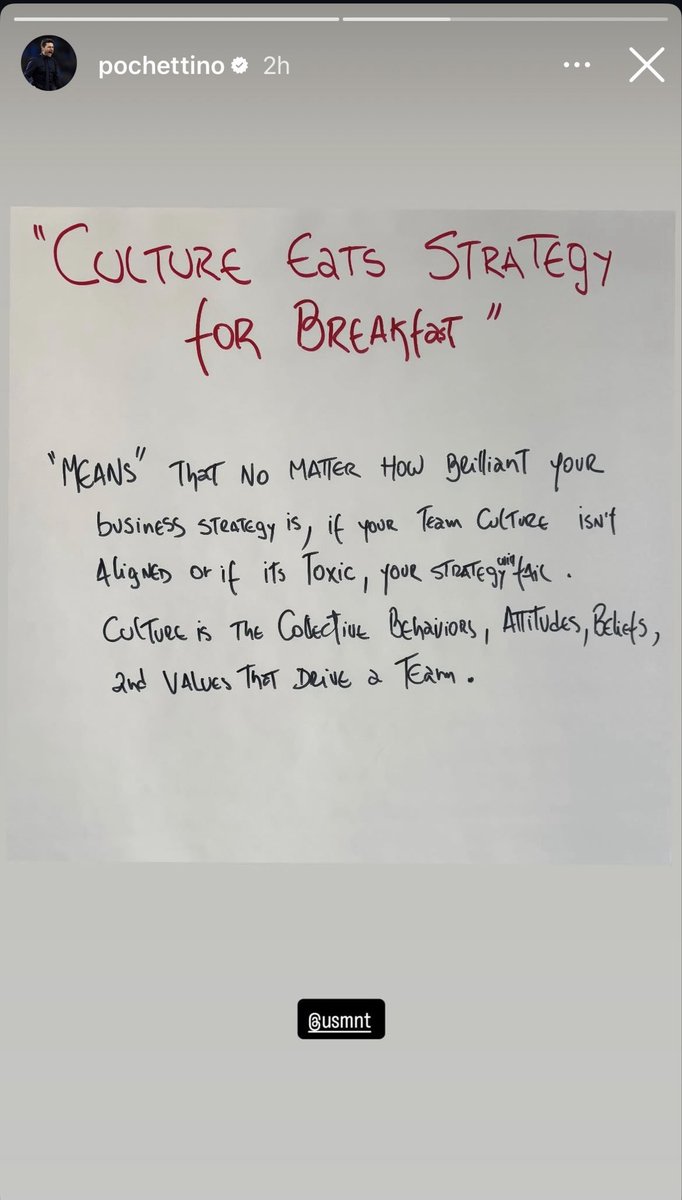 pochettino 2h
"CULTURE EATS STRATEGY
FOR BREAKFAST"
"MEANS" THAT NO MATTER HOW BRILLIANT YOUR
BUSINESS STRATEGY IS, IF YOUR TEAM CULTURE ISN'T
ALIGNED OR IF ITS TOXIC, YOUR STRATEGY WILL FAIL.
CULTURE IS THE COLECTIVE BEHAVIORS, ATTITUDES, BELIEFS,
AND VALUES THAT DRIVE A TEAM.
@usmnt